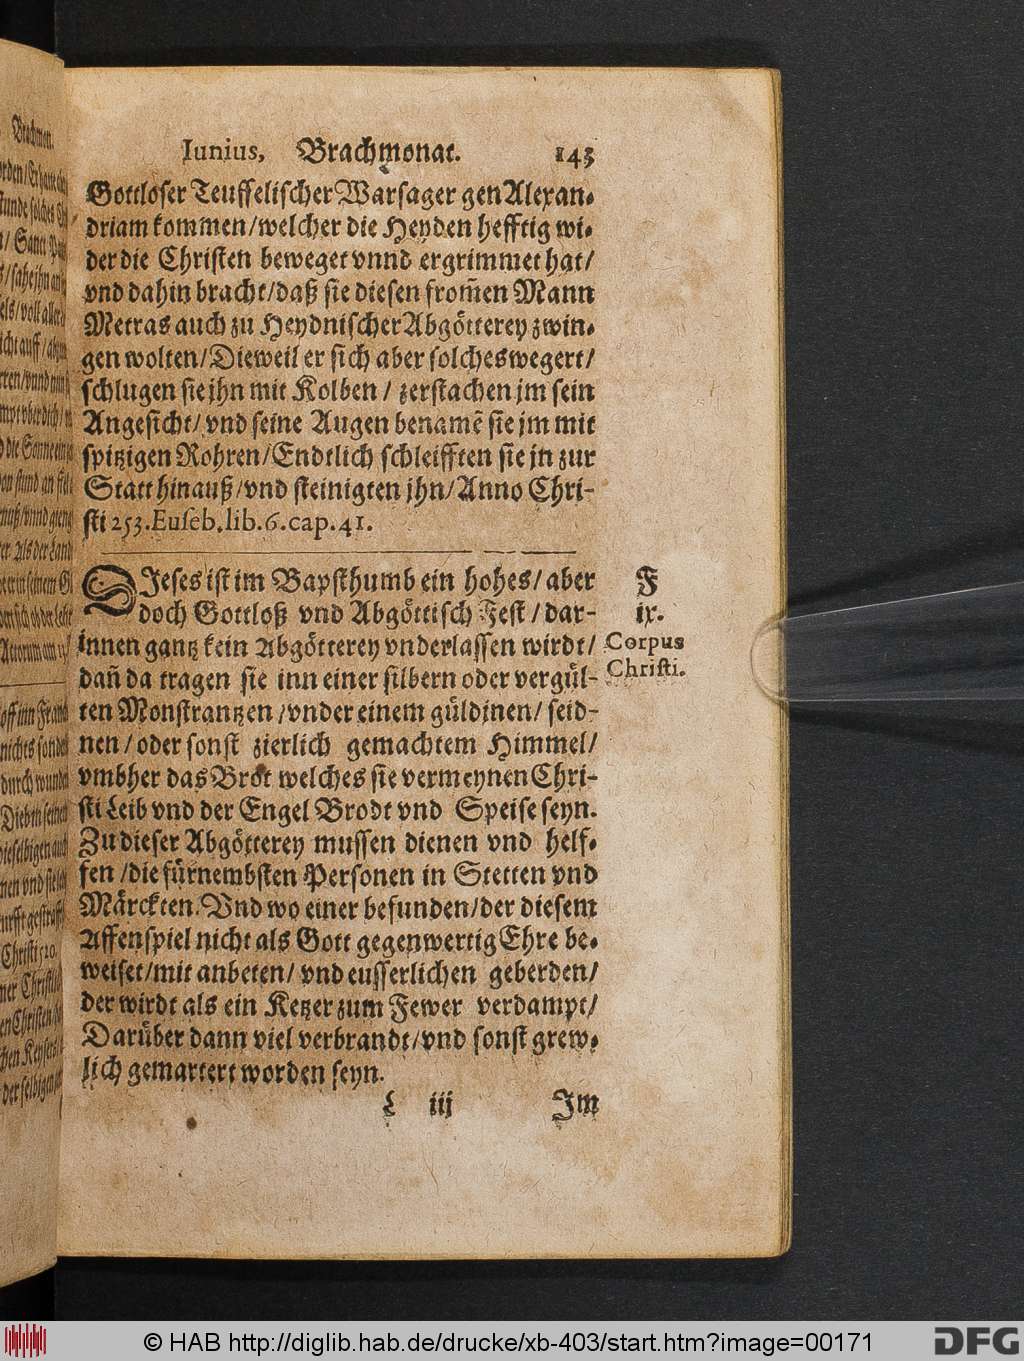 Iunius, Brachmonat. 143
Gottloser Teuffelischer Warsager gen Alexan-
driam kommen/welcher die Heyden hefftig wi-
der die Christen beweget vnnd ergrimmet hat/
vnd dahin bracht/daß sie diesen from̃en Mann
Metras auch zu Heydnischer Abgötterey zwin-
gen wolten/Dieweil er sich aber solches wegert/
schlugen sie jhn mit Kolben / zerstachen jm sein
Angesicht/ vnd seine Augen benamẽ sie jm mit
spitzigen Rohren/Endtlich schleifften sie jn zur
Statt hinauß/vnd steinigten jhn/Anno Chri-
sti 253.Euseb.lib.6.cap.41.
DIeses ist im Bapsthumb ein hohes/aber
doch Gottloß vnd Abgöttisch Fest/dar-
innen gantz kein Abgötterey vnderlassen wirdt/
dañ da tragen sie inn einer silbern oder vergül-
ten Monstrantzen /vnder einem güldinen/ seid-
nen/oder sonst zierlich gemachtem Himmel/
vmbher das Brot welches sie vermeynen Chri-
sti Leib vnd der Engel Brodt vnd Speise seyn.
Zu dieser Abgötterey mussen dienen vnd helf-
fen /die fürnembsten Personen in Stetten vnd
Märckten. Vnd wo einer befunden/der diesem
Affenspiel nicht als Gott gegenwertig Ehre be-
weiset/mit anbeten/ vnd eusserlichen geberden/
der wirdt als ein Ketzer zum Fewer verdampt/
Darüber dann viel verbrandt/vnd sonst grew-
lich gemartert worden seyn.
L iij Im
F
ix.
Corpus
Christi.
© HAB http://diglib.hab.de/drucke/xb-403/start.htm?image=00171
DFG